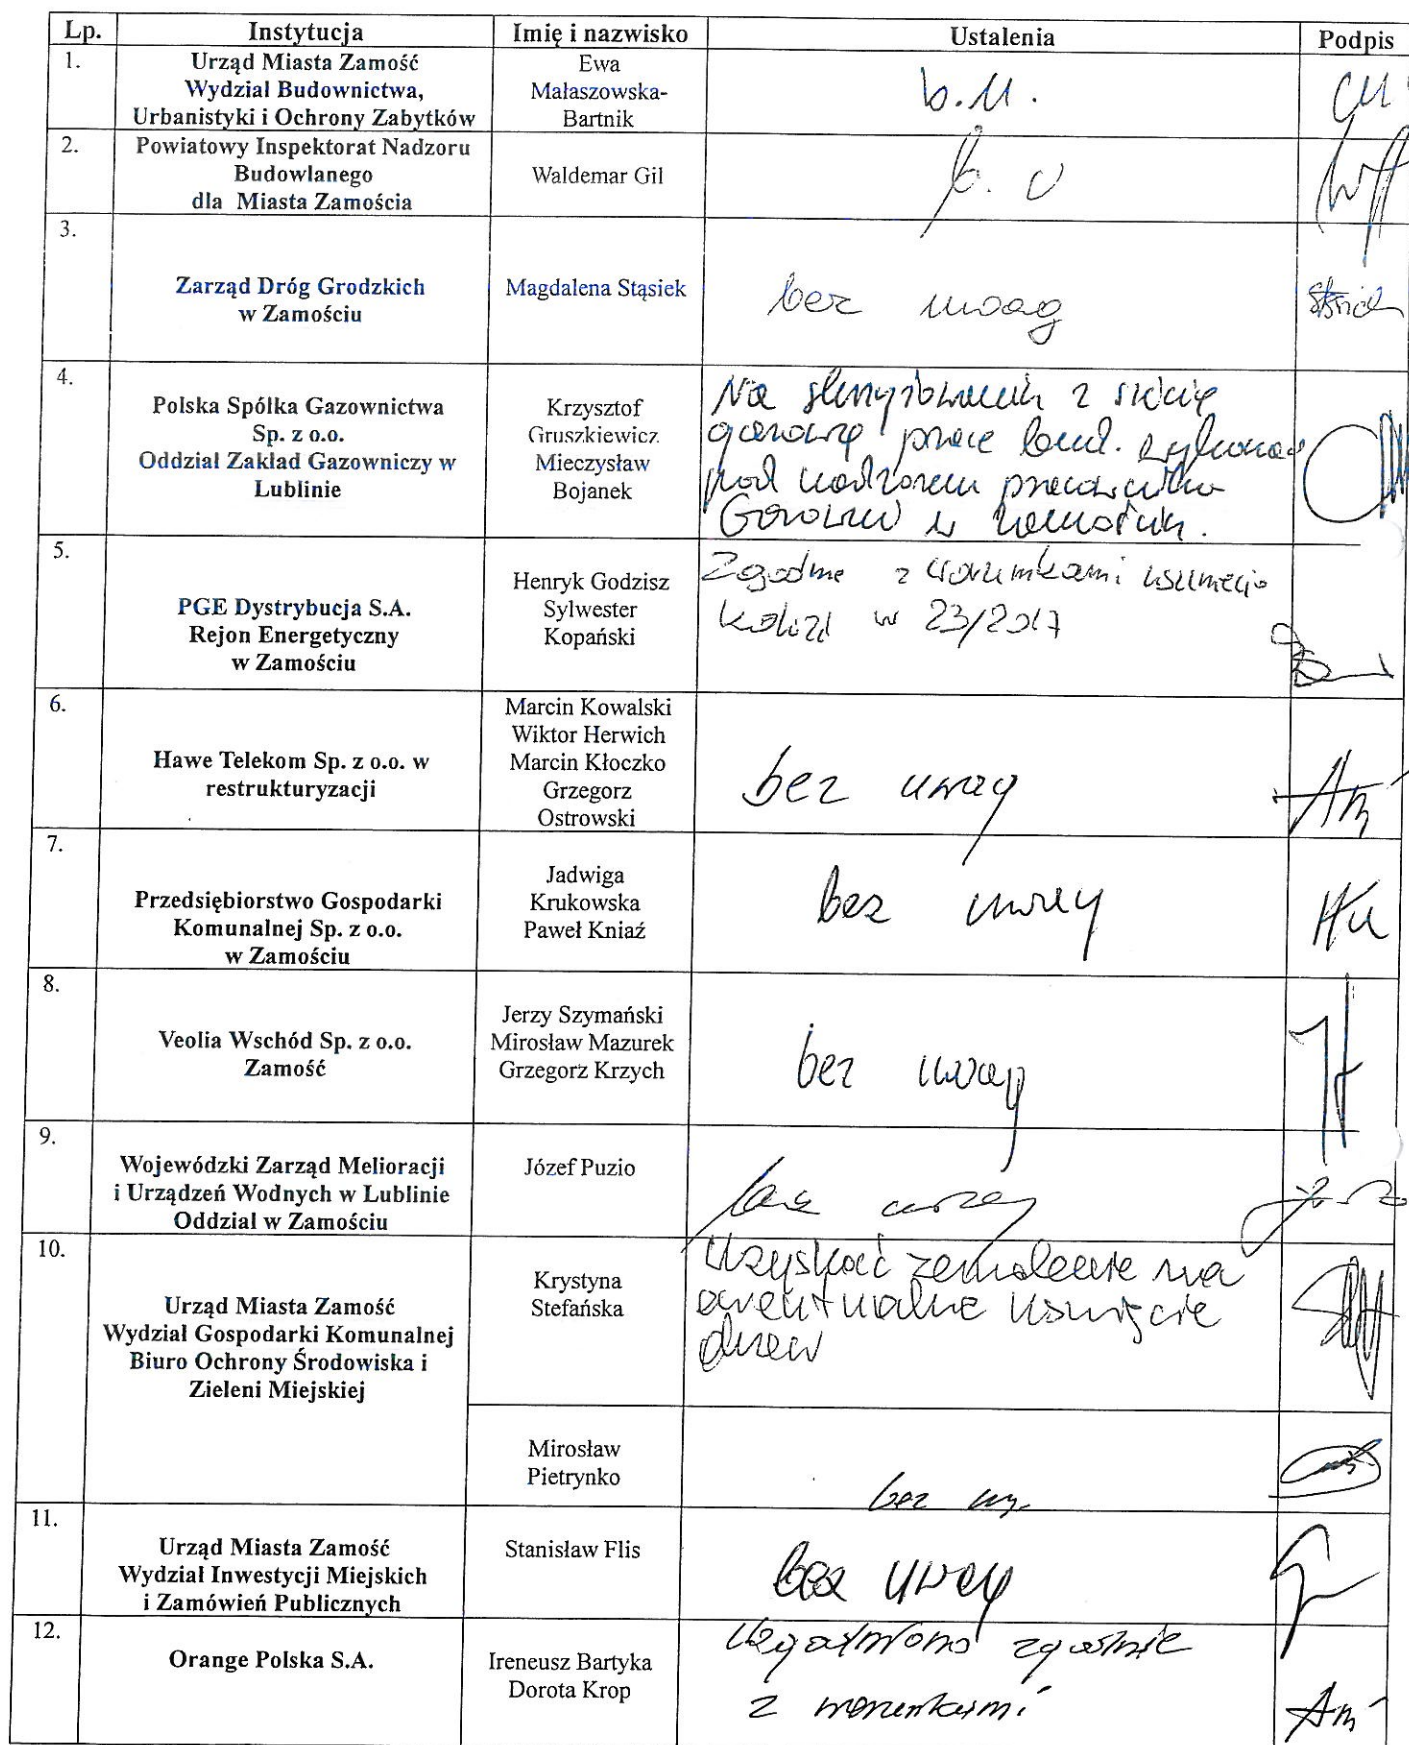 Lp. Instytucja Imię i nazwisko Ustalenia Podpis
1. Urząd Miasta Zamość
Wydział Budownictwa,
Urbanistyki i Ochrony Zabytków
Ewa
Małaszowska-
Bartnik
b.u.
2. Powiatowy Inspektorat Nadzoru
Budowlanego
dla Miasta Zamościa
Waldemar Gil
b. u
3.
Zarząd Dróg Grodzkich
w Zamościu
Magdalena Stąsiek
bez uwag
4.
Polska Spółka Gazownictwa
Sp. z o.o.
Oddział Zakład Gazowniczy w
Lublinie
Krzysztof
Gruszkiewicz
Mieczysław
Bojanek
Na skrzyżowaniu z siecią
gazową prace bud. wykonać
pod nadzorem pracownika
Gazowni w Zamościu.
5.
PGE Dystrybucja S.A.
Rejon Energetyczny
w Zamościu
Henryk Godzisz
Sylwester
Kopański
Zgodnie z warunkami usunięcia
kolizji w 23/2017
6.
Hawe Telekom Sp. z o.o. w
restrukturyzacji
Marcin Kowalski
Wiktor Herwich
Marcin Kłoczko
Grzegorz
Ostrowski
bez uwag
7.
Przedsiębiorstwo Gospodarki
Komunalnej Sp. z o.o.
w Zamościu
Jadwiga
Krukowska
Paweł Kniaź
bez uwag
8.
Veolia Wschód Sp. z o.o.
Zamość
Jerzy Szymański
Mirosław Mazurek
Grzegorz Krzych
bez uwag
9.
Wojewódzki Zarząd Melioracji
i Urządzeń Wodnych w Lublinie
Oddział w Zamościu
Józef Puzio
bez uwag
10.
Urząd Miasta Zamość
Wydział Gospodarki Komunalnej
Biuro Ochrony Środowiska i
Zieleni Miejskiej
Krystyna
Stefańska
Uzyskać zezwolenie na
ewentualne usunięcie
drzew
Mirosław
Pietrynko
bez uw.
11.
Urząd Miasta Zamość
Wydział Inwestycji Miejskich
i Zamówień Publicznych
Stanisław Flis
bez uwag
12.
Orange Polska S.A.
Ireneusz Bartyka
Dorota Krop
Uzgodniono zgodnie
z warunkami